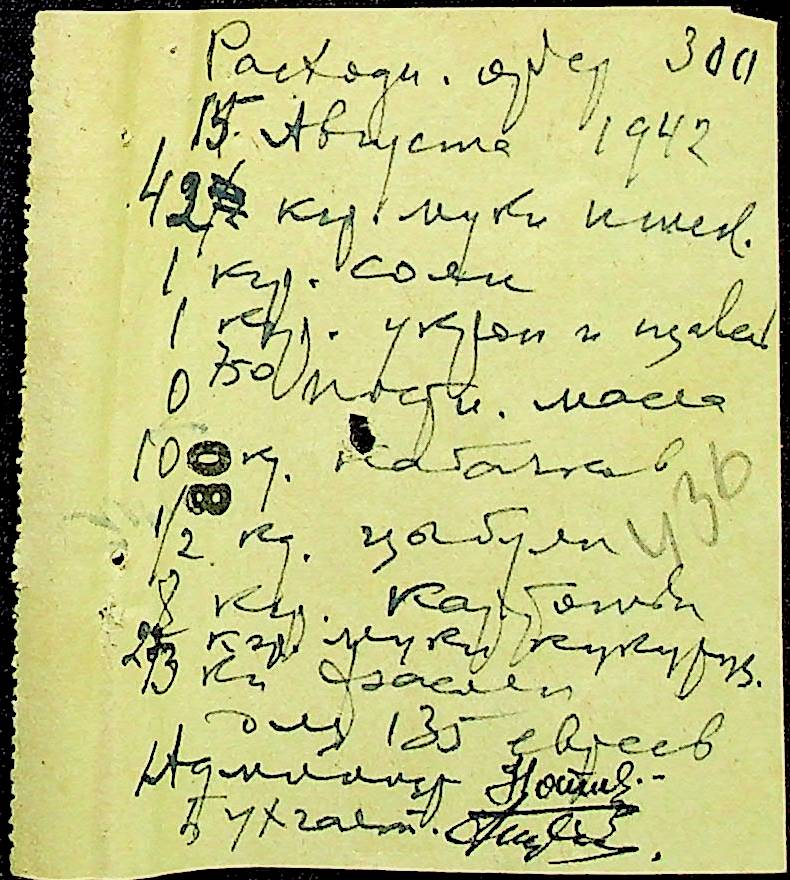 Расходн. ордер 300
15 Августа 1942
42 кгр. муки пшен.
1 кгр. соли
1 кгр. укроп и щавел
0 750 пост. масла
10 кг. кабачков
80
1/2 кг. цыбули
436
8 кгр. картошки
25 кгр. муки кукуруз.
13 кг фасоли
для 135 евреев
Администр
Бухгалт.